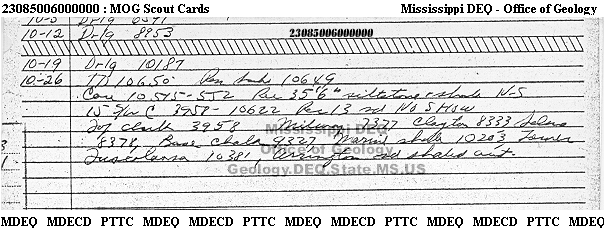 23085006000000 : MOG Scout Cards Mississippi DEQ - Office of Geology
10-5 Drlg 6591
10-12 Drlg 8953 23085006000000
10-19 Drlg 10187
10-26 TD 10650 10649
Core 10545-552 Rec 35'6" siltstone & shale N-S
15 SWC 3958-10622 Rec 13 sd No S HSW
Top chalk 3958 Midway 7377 Clayton 8333 Selma
8378, Base Chalk 9327 Marine shale 10203 Lower
Tuscaloosa 10381, sd shaled out.
Mississippi DEQ
Office of Geology
Geology.DEQ.State.MS.US
MDEQ MDECD PTTC MDEQ MDECD PTTC MDEQ MDECD PTTC MDEQ MDECD PTTC MDEQ